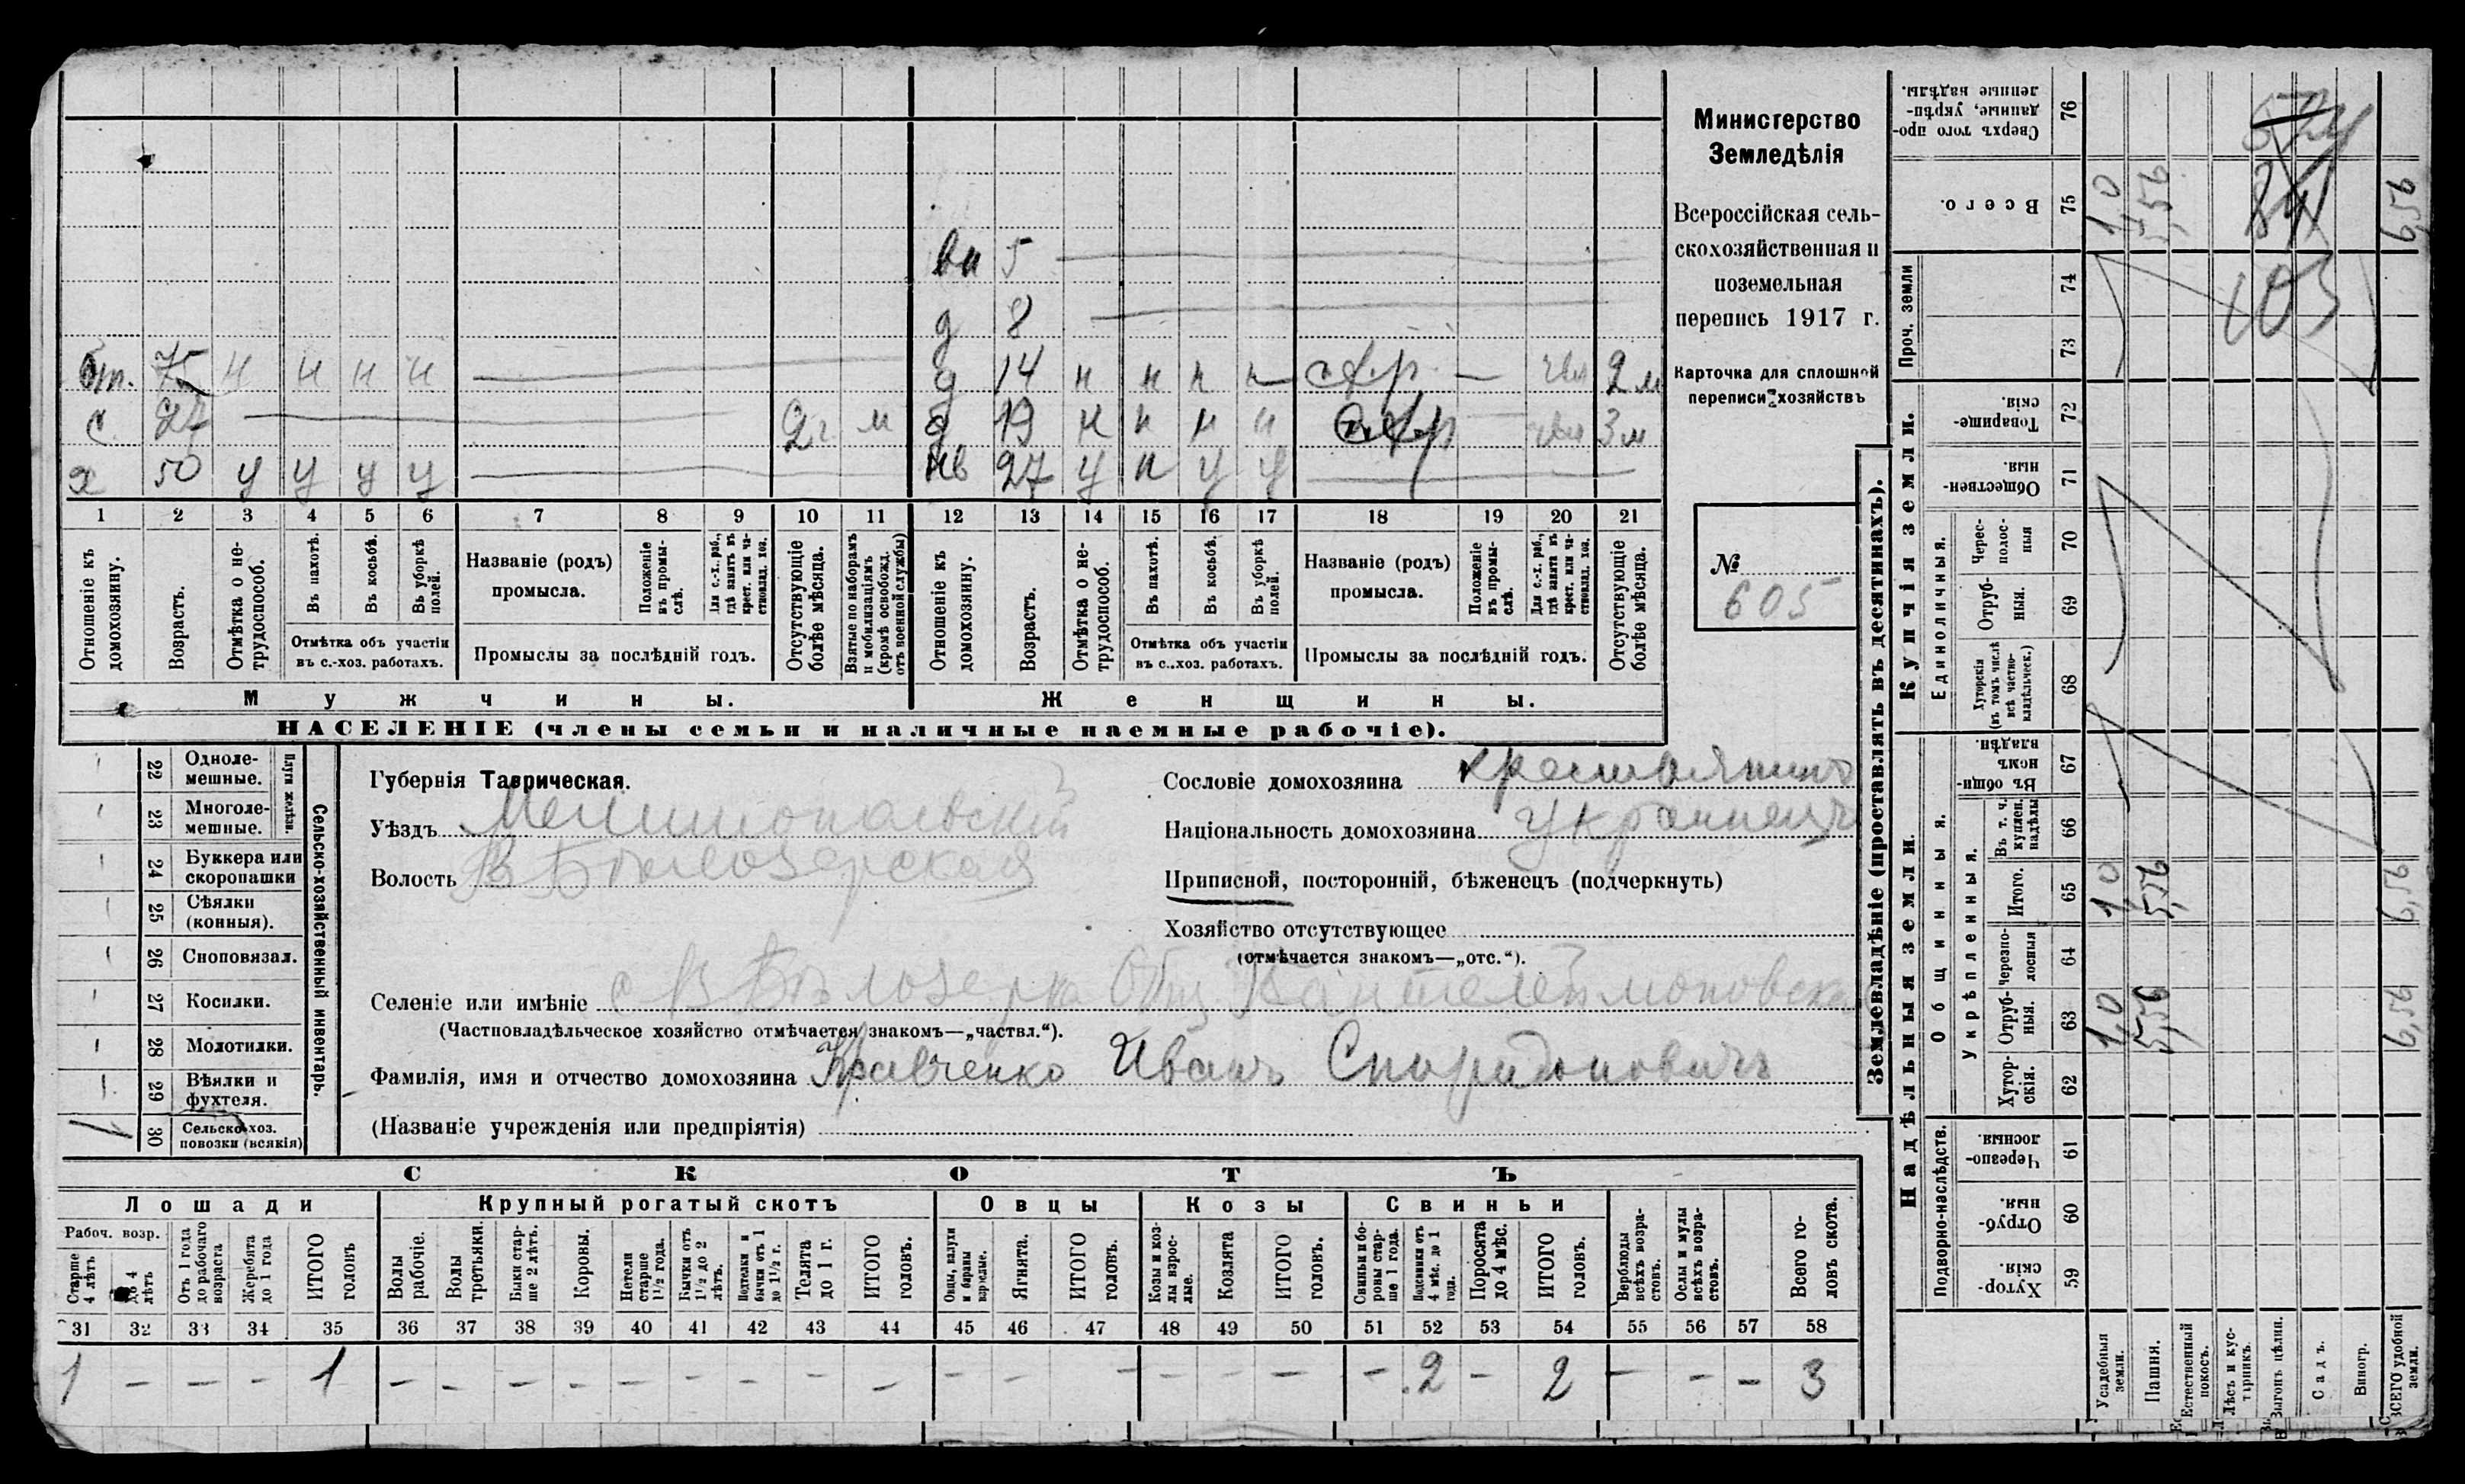 вн 5
д 8
75 н н н н д 14 н н н н 2 м
с 27 2 г м д 19 н н н н 3 м
х 50 у у у у нв 27 у н у у
1 2 3 4 5 6 7 8 9 10 11 12 13 14 15 16 17 18 19 20 21
Отношеніе къ домохозяину.
Возрастъ.
Отмѣтка о не-трудоспособ.
Въ пахотѣ.
Въ косьбѣ.
Въ уборкѣ полей.
Отмѣтка объ участіи
въ с.-хоз. работахъ.
Названіе (родъ)
промысла.
Положеніе въ промы-слѣ.
Для с.-х. раб., гдѣ занятъ въ крест. или ча-стновлад. хоз.
Промыслы за послѣдній годъ.
Отсутствующіе болѣе мѣсяца.
Взятые по наборамъ и мобилизаціямъ (кромѣ освобожд. отъ военной службы)
Отношеніе къ домохозяину.
Возрастъ.
Отмѣтка о не-трудоспособ.
Въ пахотѣ.
Въ косьбѣ.
Въ уборкѣ полей.
Отмѣтка объ участіи
въ с.-хоз. работахъ.
Названіе (родъ)
промысла.
Положеніе въ промы-слѣ.
Для с.-х. раб., гдѣ занята въ крест. или ча-стновлад. хоз.
Промыслы за послѣдній годъ.
Отсутствующіе болѣе мѣсяца.
Мужчины. Женщины.
НАСЕЛЕНІЕ (члены семьи и наличные наемные рабочіе).
Министерство
Земледѣлія
Всероссійская сель-
скохозяйственная и
поземельная
перепись 1917 г.
Карточка для сплошной
переписи хозяйствъ
№
605
22 Одноле-мешные.
23 Многоле-мешные.
Плуги желѣзн.
24 Буккера или скоропашки
25 Сѣялки (конныя).
26 Сноповязал.
27 Косилки.
28 Молотилки.
29 Вѣялки и фухтеля.
1 30 Сельско-хоз. повозки (всякія)
Сельско-хозяйственный инвентарь.
Губернія Таврическая.
Уѣздъ Мелитопольскій
Волость В Бѣлозерская
Сословіе домохозяина крестьянинъ
Національность домохозяина украинецъ
Приписной, посторонній, бѣженецъ (подчеркнуть)
Хозяйство отсутствующее
(отмѣчается знакомъ—„отс.“).
Селеніе или имѣніе с В Бѣлозерка Общ. Пантелеймоновска
(Частновладѣльческое хозяйство отмѣчается знакомъ—„частвл.“).
Фамилія, имя и отчество домохозяина Кравченко Иванъ Спиридоновичъ
(Названіе учрежденія или предпріятія)
СКОТЪ
Лошади Крупный рогатый скотъ Овцы Козы Свиньи
Рабоч. возр.
Старше 4 лѣтъ
до 4 лѣтъ
Отъ 1 года до рабочаго возраста
Жеребята до 1 года
ИТОГО головъ
Волы рабочіе.
Волы третьяки.
Быки стар-ше 2 лѣтъ.
Коровы.
Нетели старше 1½ года.
Бычки отъ 1½ до 2 лѣтъ.
Подтелки и бычки отъ 1 до 1½ г.
Телята до 1 г.
ИТОГО головъ.
Овцы, валухи и бараны взрослые.
Ягнята.
ИТОГО головъ.
Козы и коз-лы взрос-лые.
Козлята
ИТОГО головъ.
Свиньи и бо-ровы стар-ше 1 года.
Подсвинки отъ 4 мѣс. до 1 года.
Поросята до 4 мѣс.
ИТОГО головъ.
Верблюды всѣхъ возра-стовъ.
Ослы и мулы всѣхъ возра-стовъ.
Всего го-ловъ скота.
31 32 33 34 35 36 37 38 39 40 41 42 43 44 45 46 47 48 49 50 51 52 53 54 55 56 57 58
1 — — — 1 — — — — — — — — — — — — — — — — 2 — 2 — — — 3
Землевладѣніе (проставлять въ десятинахъ).
Надѣльныя земли. Купчія земли. Проч. земли
Подворно-наслѣдств.
Общинныя.
Укрѣпленныя.
Единоличныя.
Хутор-скія. 59
Отруб-ныя. 60
Черезпо-лосныя. 61
Хутор-скія. 62
Отруб-ныя. 63 1,0 5,56 6,56
Черезпо-лосныя 64
Итого. 65 1,0 5,56 6,56
Въ т. ч. куплен. надѣлы 66
Въ общи-номъ владѣн. 67
Хуторскія (въ томъ числѣ всѣ частно-владѣльческ.) 68
Отруб-ныя. 69
Черес-полос-ныя 70
Обществен-ныя. 71
Товарище-скія. 72
73
74
Всего. 75 1,0 5,56 6,56
Сверхъ того про-данные, укрѣп-ленные надѣлы. 76
103
Усадебныя земли.
Пашня.
Естественный покосъ.
Лѣсъ и кус-тарникъ.
Выгонъ цѣлин.
Садъ.
Виногр.
ВСЕГО удобной земли.